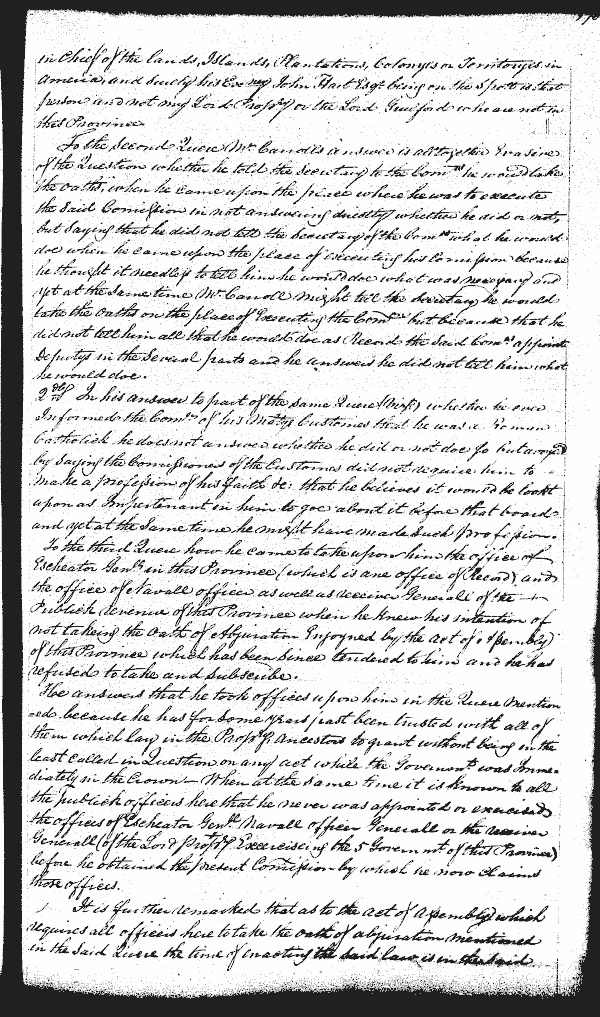 in Chief of the Lands, Islands, Plantations, Colonyes or Territoryes in
America, and surely his Ex:ncy John Hart Esqr being on the Spott is that
person and not my Lord Propry or the Lord Guilford who are not in
this Province
To the Second Quere Mr Carroll's answer is alltogether Evasive
of the Question whether he told the Secretary to the Comrs he would take
the oaths, when he came upon the place where he was to execute
the Said Comission in not answering directly whether he did or not,
but Saying that he did not tell the Secretary of the Comrs what he would
doe when he came upon the place of executing his Comission because
he thought it needless to tell him he would doe what was necessary and
yet at the same time Mr Carroll might tell the Secretary he would
take the oaths on the place of Executing the Comn but because that he
did not tell him all that he would doe as Record the Said Comn appoint
Deputys in the Several parts and he answers he did not tell him what
he would doe.
2dly In his answer to part of the same Quere whether he ever
Informed the Comrs of his Majtys Customes that he was a Roman
Catholick he does not answer whether he did or not doe so but avoyd
by saying the Comissioners of the Customes did not require him to
make a profession of his faith &c: that he believes it would be lookt
upon as Impertenent in him to goe about it before that board
and yet at the same time he might have made such profession.
To the third Quere how he came to take upon him the office of
Escheator Genll in this Province (which is one office of Record) and
the office of Navall officer as well as receiver Generall of the
Publick revenue of this Province when he knew his intention of
not takeing the Oath of abjuration Enjoyned by the act of Assembly
of this Province which has been since tendered to him and he has
refused to take and subscribe.
He answers that he took offices upon him in the Quere Mention
=ed, because he has for some years past been trusted with all of
them which lay in the Proprys Ancestors to grant without being in the
least called in Question on any act while the Goverment was Imme=
diately in the Crown - When at the same time it is known to all
the publick officers here that he never was appointed or exercised
the offices of Escheator Genll Navall officer Generall or the receiver
Generall (of the Lord Propry Excerciseing the Government of this Province)
before he obtained the present Comission by which he now claims
those offices.
It is further remarked that as to the act of Assembly which
requires all officers here to take the oath of abjuration mentioned
in the Said Quere the time of enacting the said law is in the said